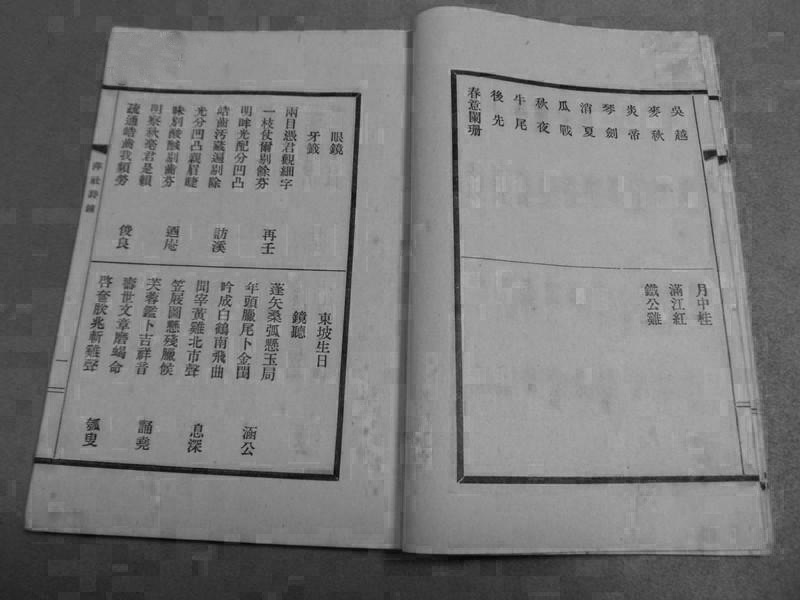 吳越
麥秋
炎帝
琴劍
消夏
瓜戰
秋夜
牛尾
後先
春意闌珊
月中桂
滿江紅
鐵公雞
眼鏡
牙籤
兩目憑君觀細字
一枝仗爾剔餘芬
再壬
明眸光配分凹凸
皓齒汚藏遍剔除
訪溪
光分凹凸親眉睫
味別酸醎剔齒芬
迺庵
明察秋毫君是賴
疏通皓齒我頻勞
俊良
東坡生日
鏡聽
蓬矢桑弧懸玉局
年頭臘尾卜金閨
涵公
吟成白鶴南飛曲
聞宰黃雞北市聲
息深
笠屐圖懸殘臘候
芙蓉鑑卜吉祥音
誦堯
壽世文章磨蝎命
啓奩歌兆斬雞聲
瓠叟
社詩鐘
一